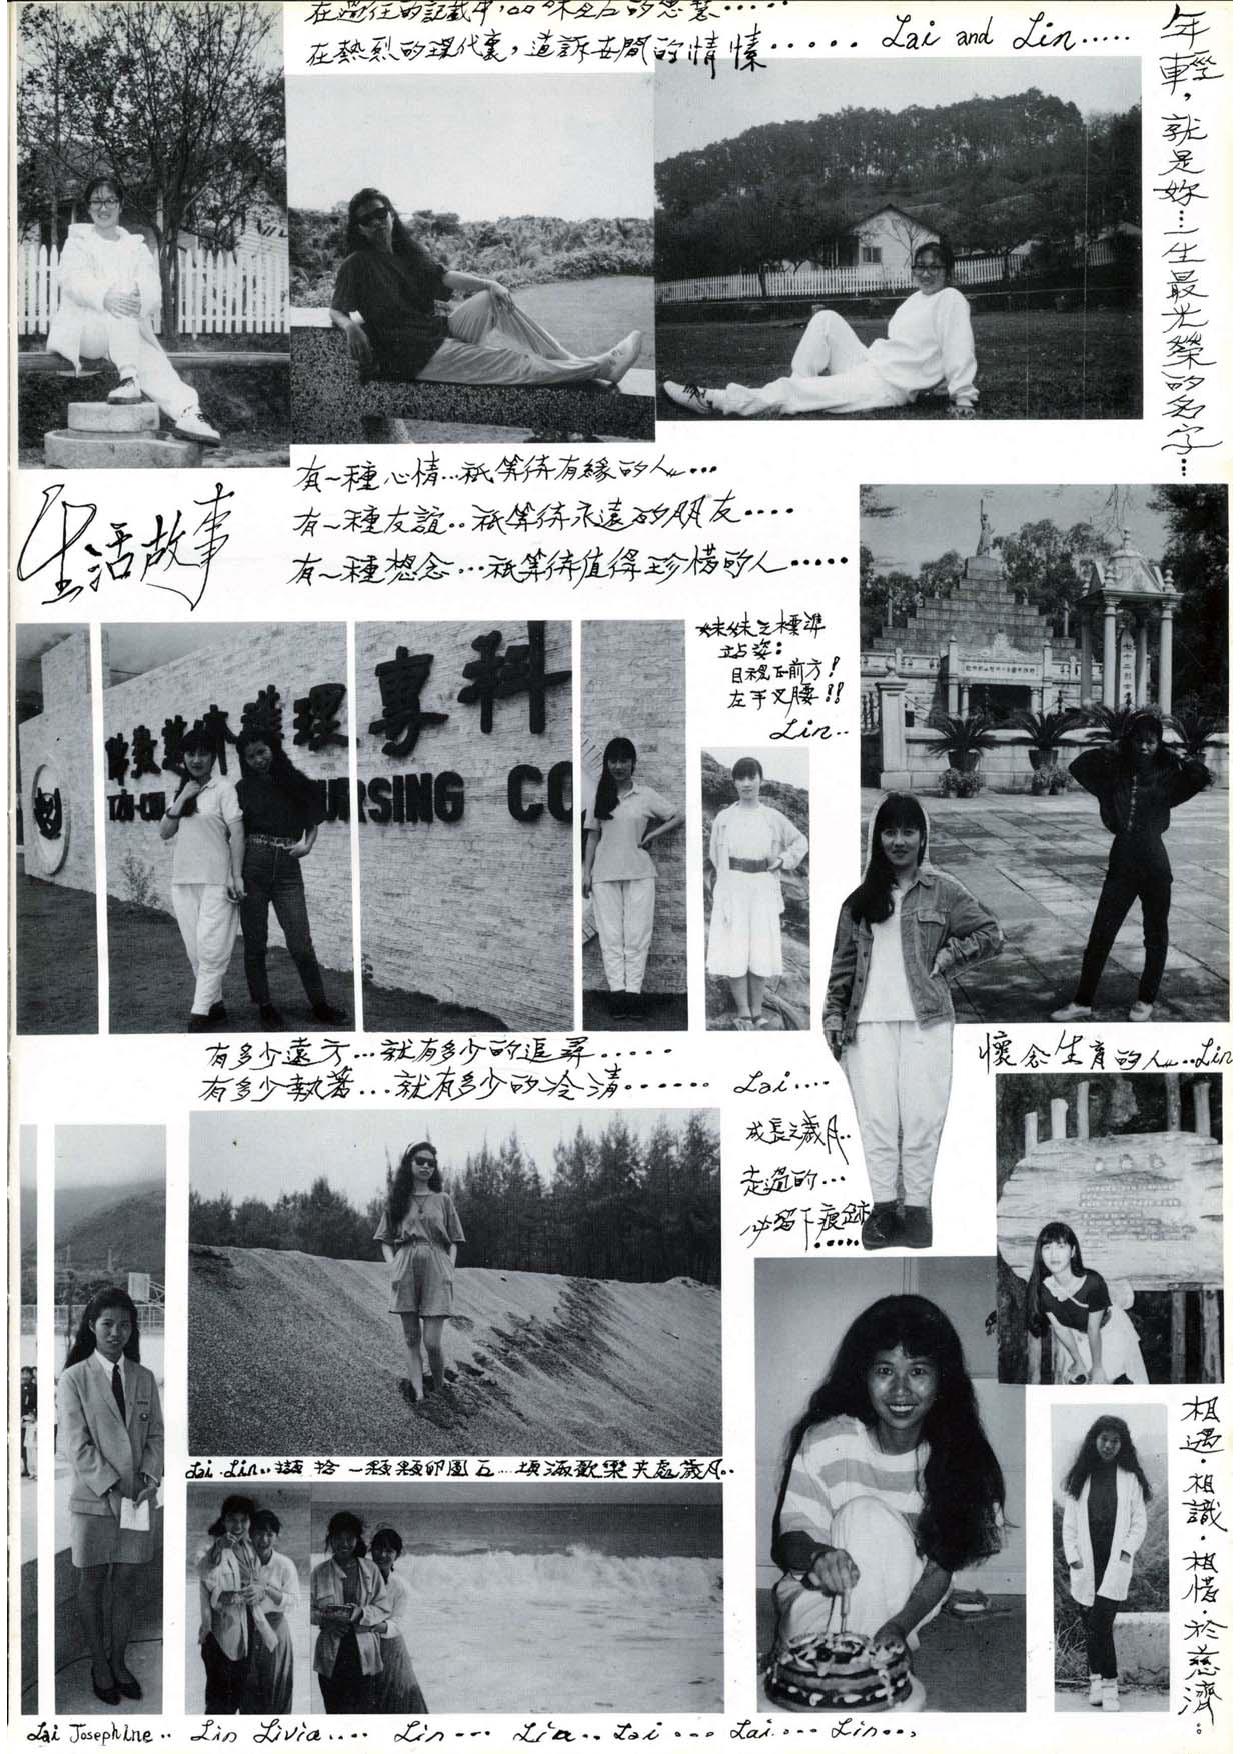 在過往的記載中,品味見石的思慧.....
在熱烈的現代裏,道訴世間的情愫..... Lai and Lin.....
年輕,就是妳...一生最光榮的名字...
有一種心情...祇等待有緣的人...
有一種友誼..祇等待永遠的朋友....
有一種想念...祇等待值得珍惜的人.....
生活故事
妹妹之標準
站姿:
目視正前方!
左手叉腰!!
Lin..
護理專科
NURSING CO
七十二烈士
有多少遠方...就有多少的追尋.....
有多少執著...就有多少的冷清...... Lai....
懷念生育的人...Lin
成長之歲月..
走過的...
必留下痕跡
.....
Lai.Lin..撿拾一顆顆卵圓石...填滿歡樂共處歲月..
相遇.相識.相惜.於慈濟..
Lai Josephine.. Lin Livia.... Lin... Lia.. Lai .... Lai.... Lin...